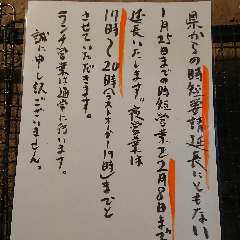 県からの時短要請延長にともない
1月25日までの時短営業を2月8日まで
延長いたします。夜営業は
17時〜20時(ラストオーダー19時)までと
させていただきます。
ランチ営業は通常に行います。
誠に申し訳ございません。